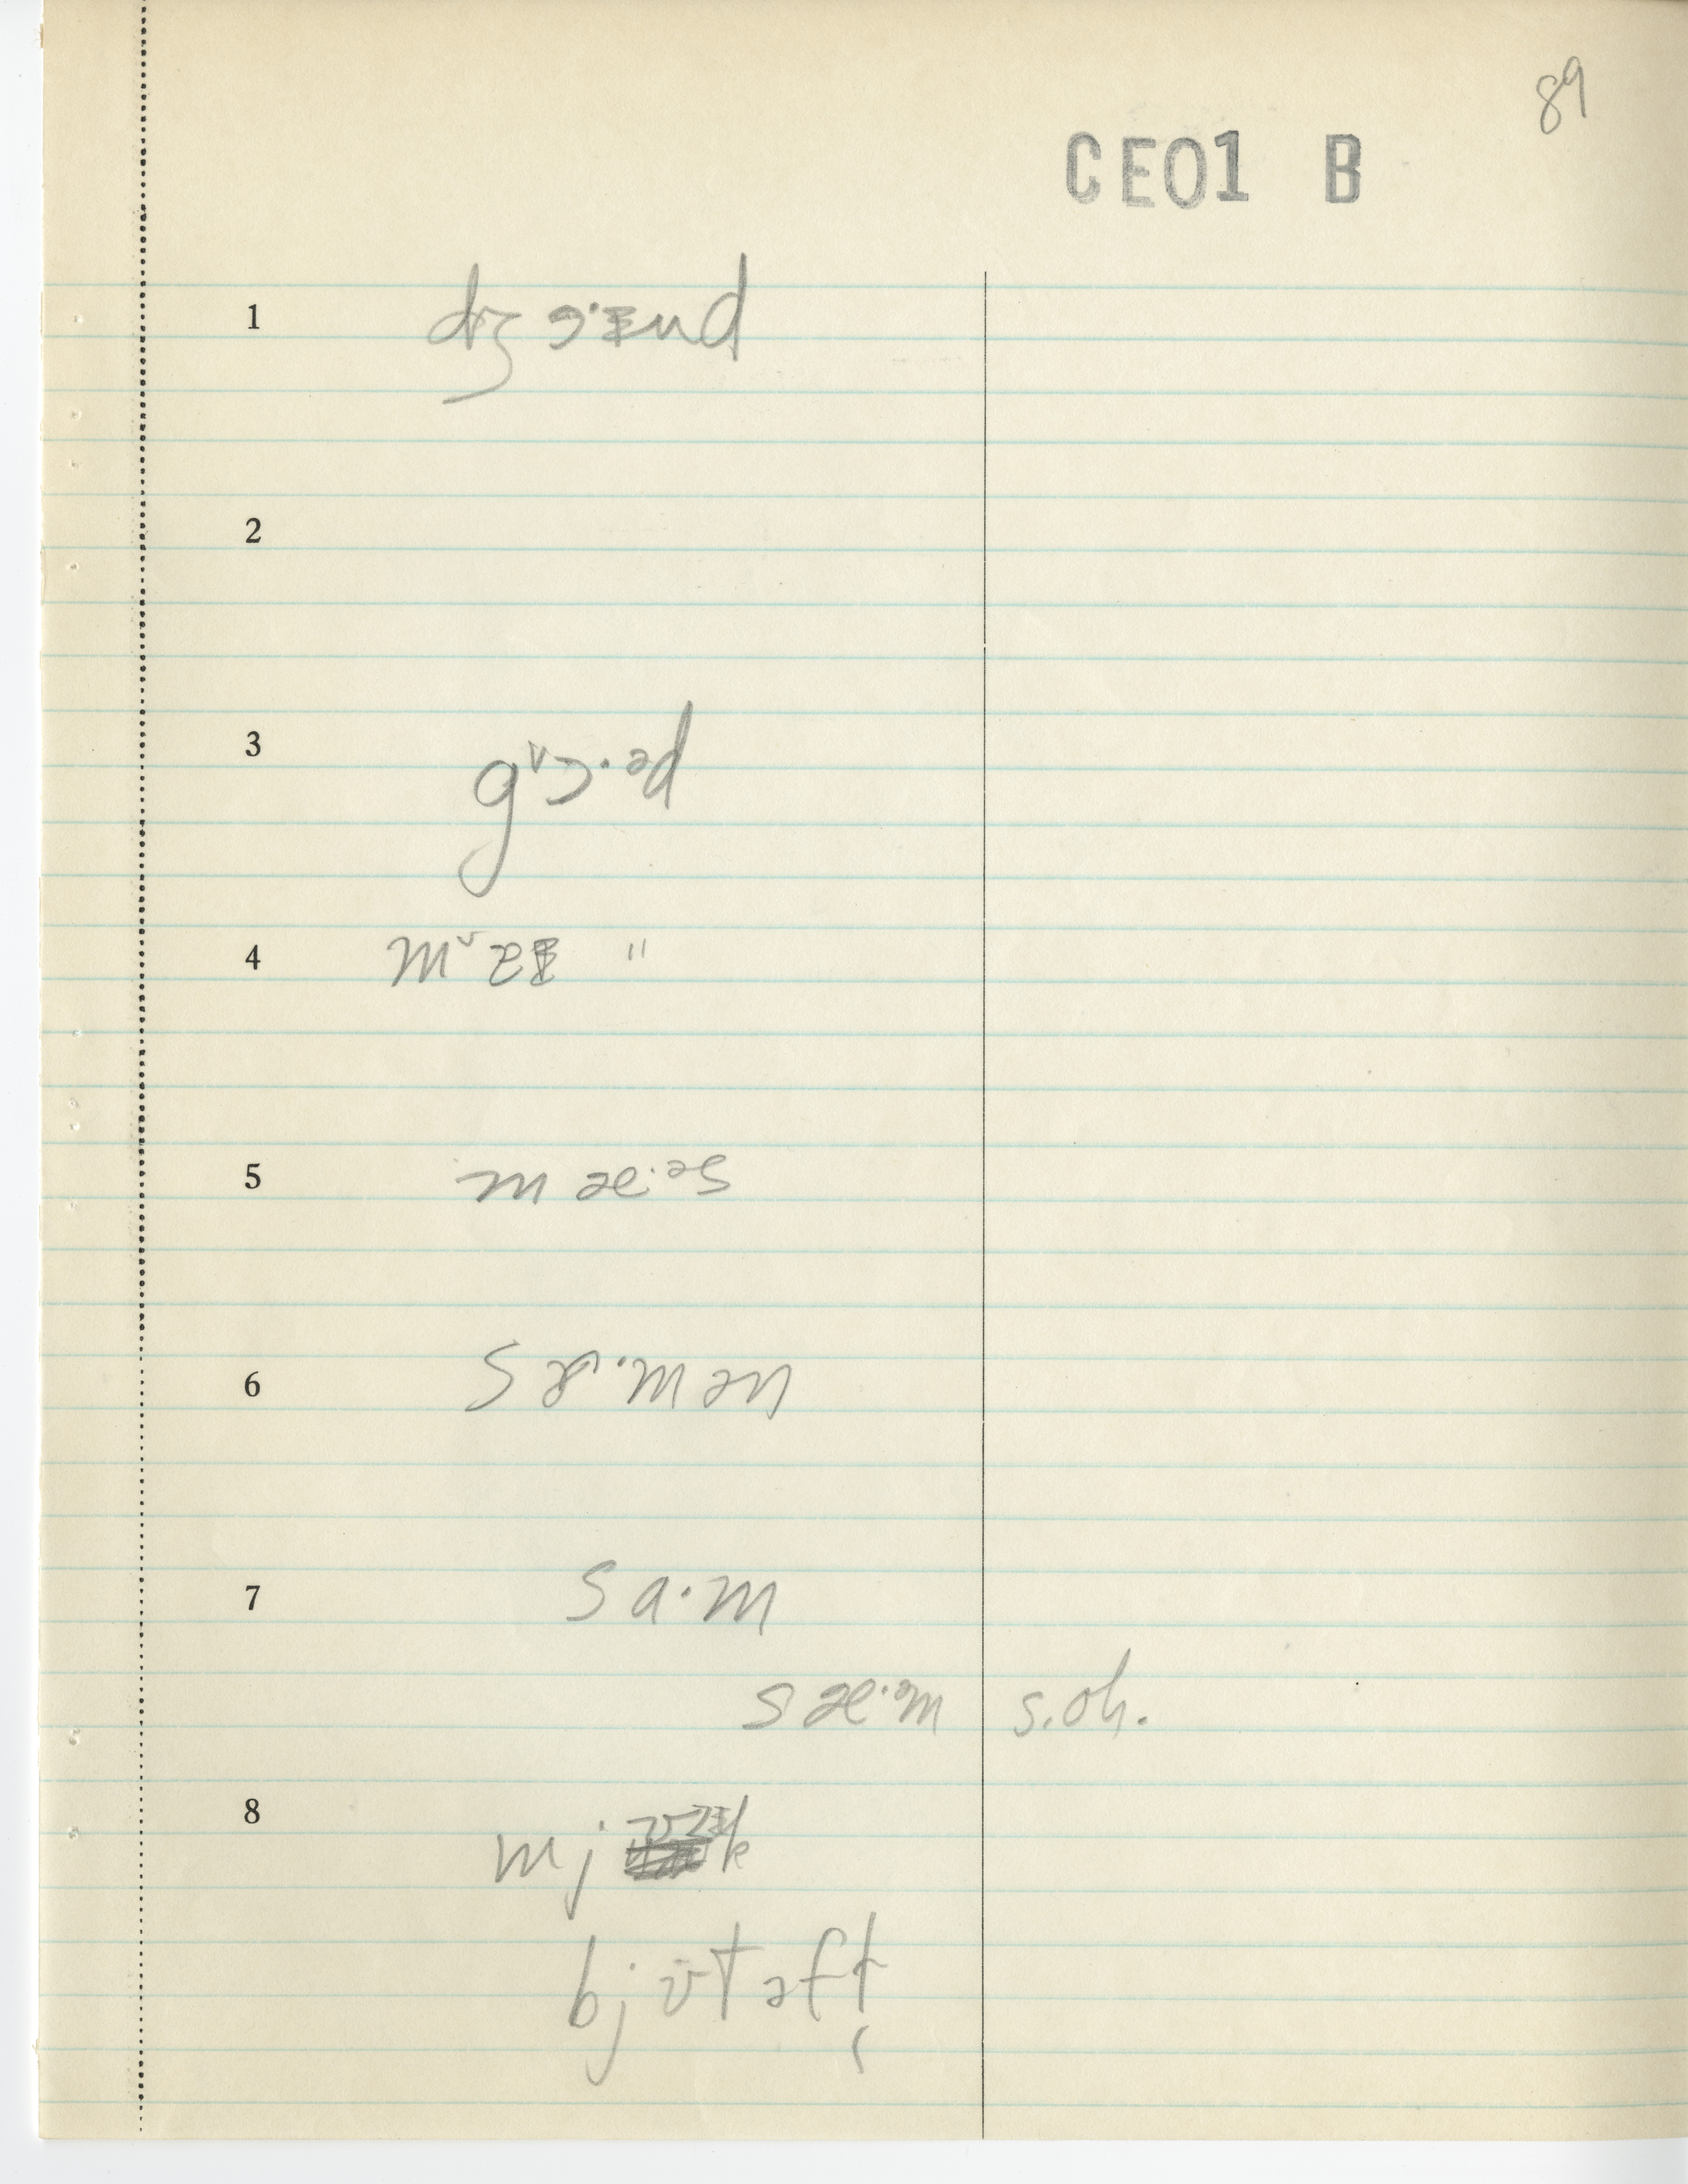 89
CE01 B
1 dʒɔ·ɪnd
2
3 gᵛɔ·əd
4 "
5 mæ·əs
6 sæ·mən
7 sa·m
sæ·əm s.oh.
8 mj k
bjʊtəft